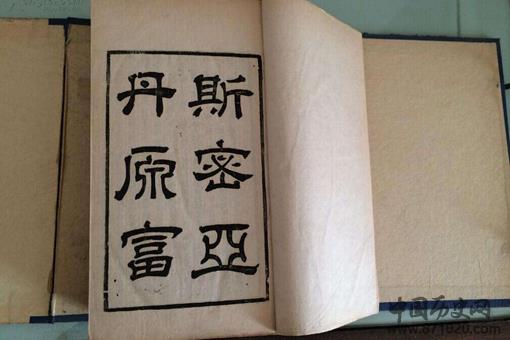 斯密亞
丹原富
中国历史网
www.871020.com